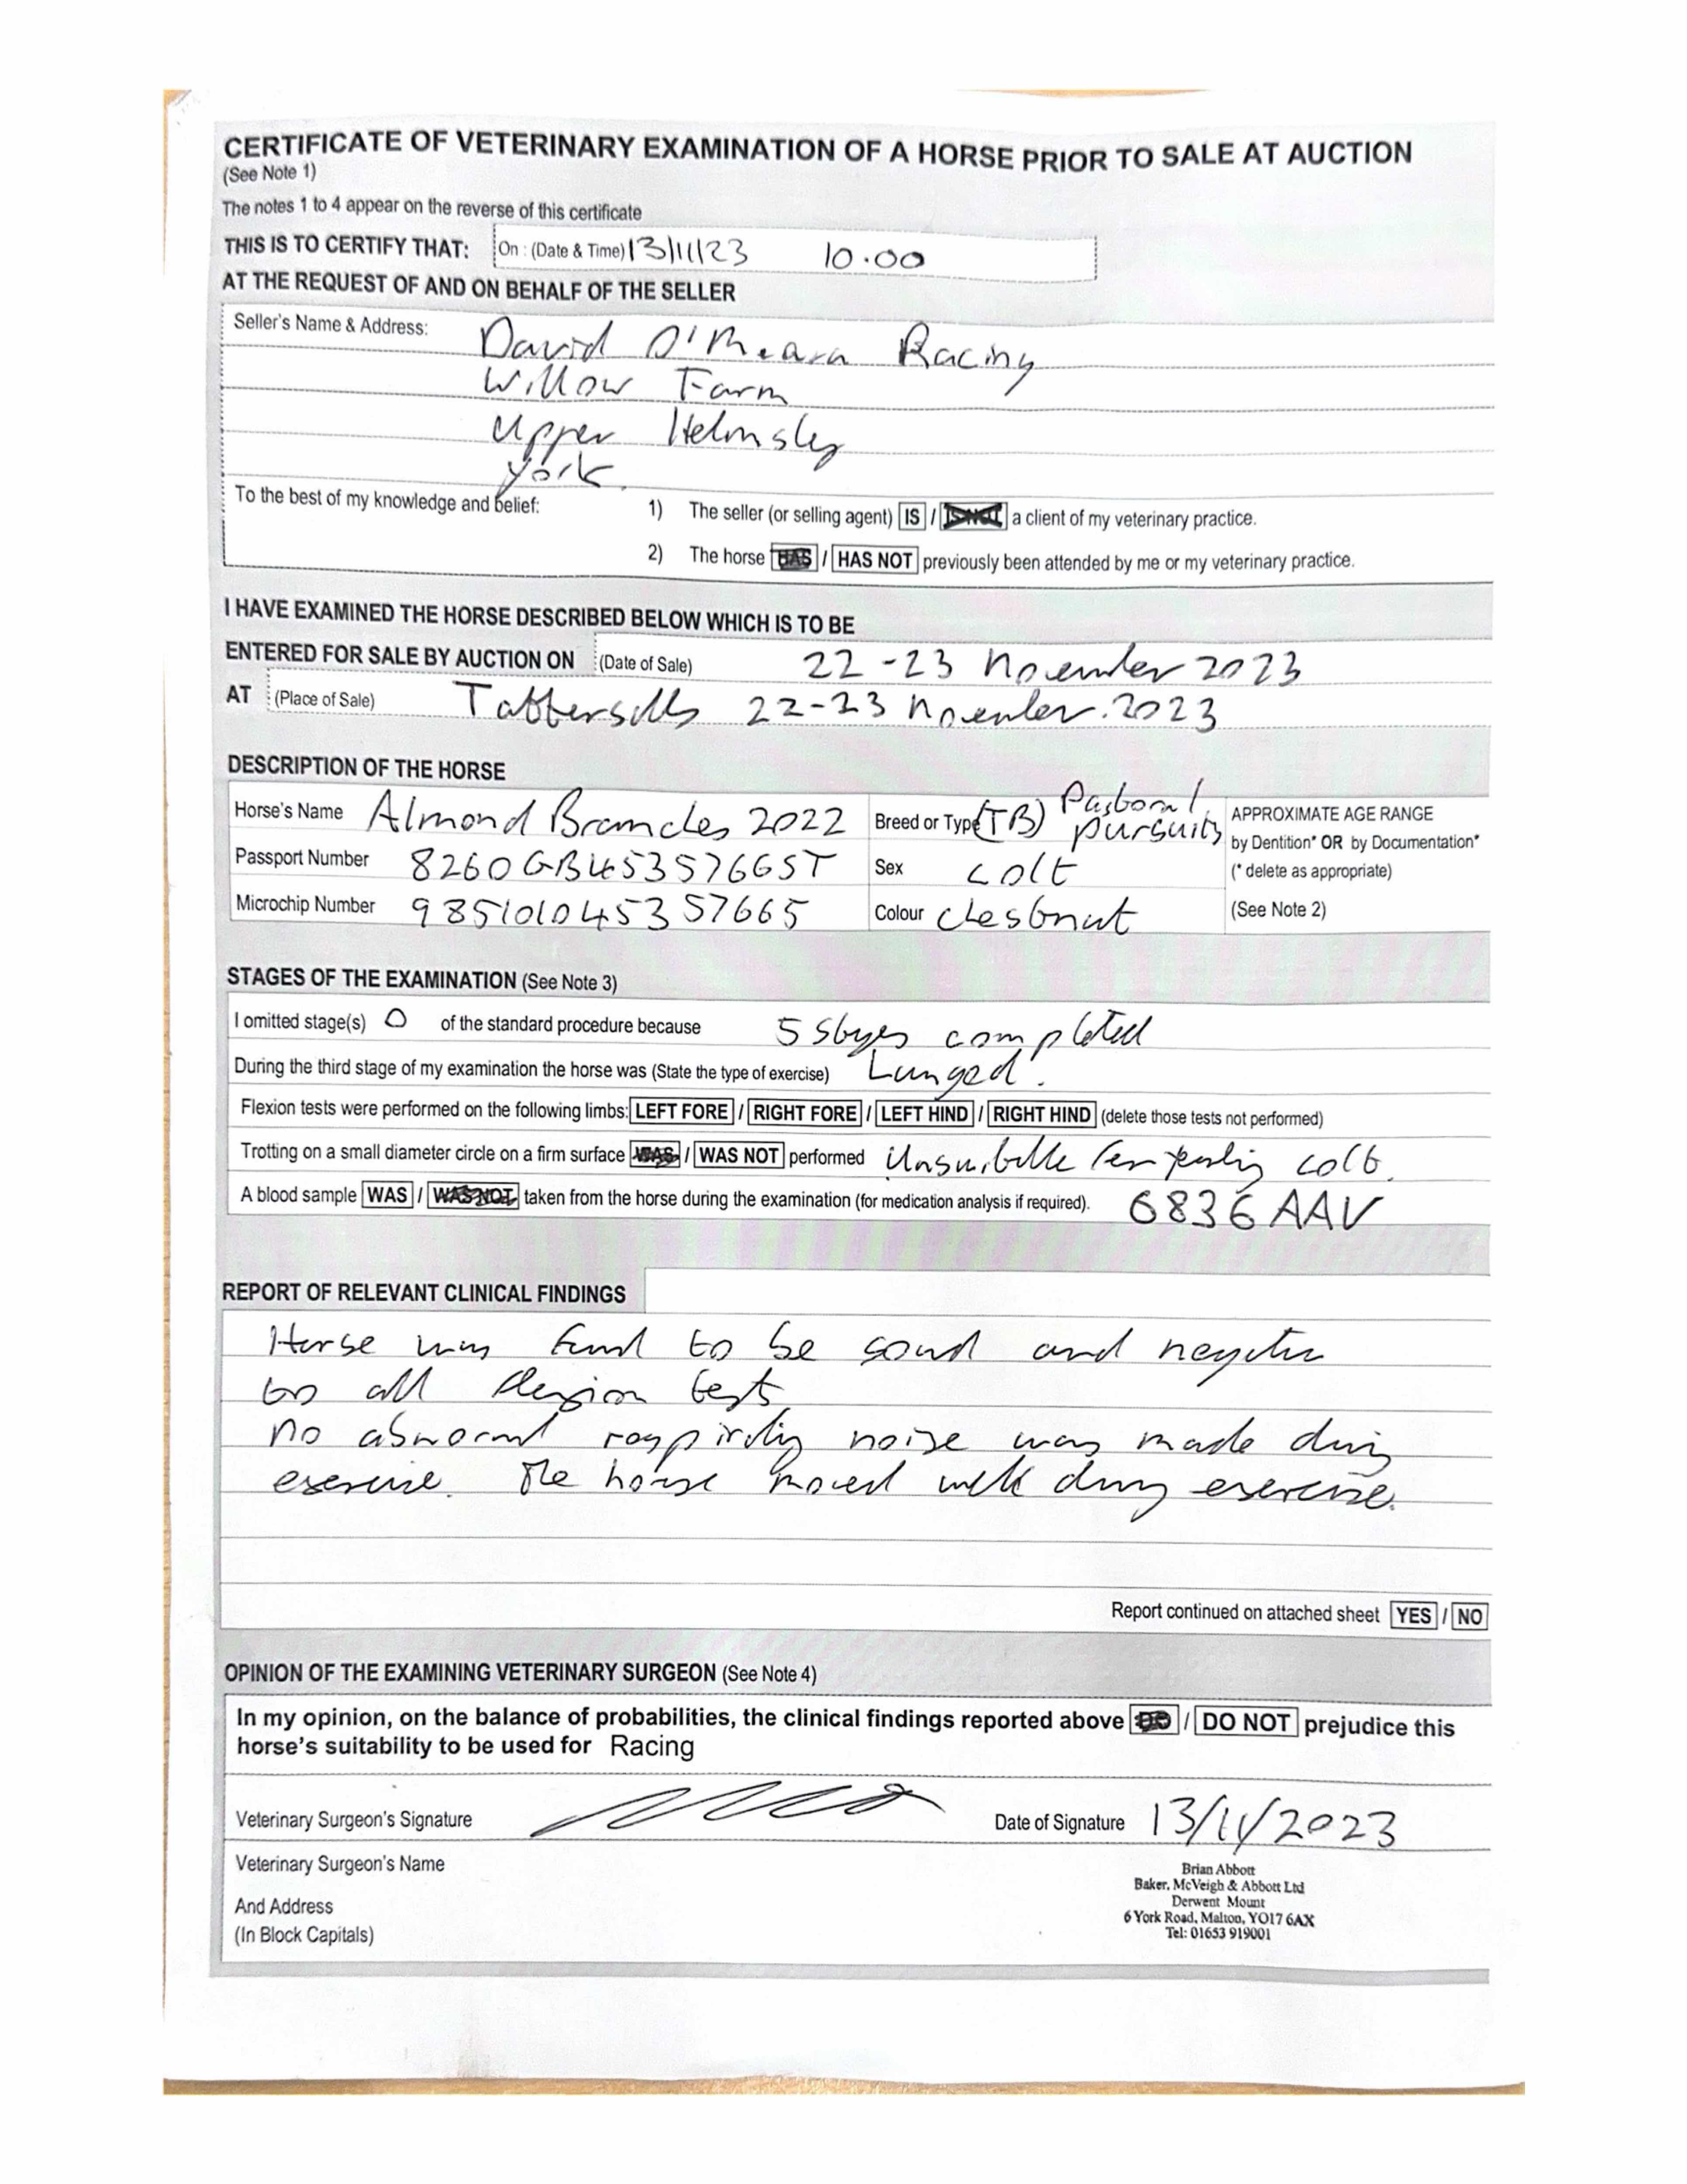 CERTIFICATE OF VETERINARY EXAMINATION OF A HORSE PRIOR TO SALE AT AUCTION
(See Note 1)
The notes 1 to 4 appear on the reverse of this certificate
THIS IS TO CERTIFY THAT: On : (Date & Time) 13/11/23 10.00
AT THE REQUEST OF AND ON BEHALF OF THE SELLER
Seller's Name & Address: David O'Meara Racing
Willow Farm
Upper Helmsley
York.
To the best of my knowledge and belief: 1) The seller (or selling agent) IS / IS NOT a client of my veterinary practice.
2) The horse HAS / HAS NOT previously been attended by me or my veterinary practice.
I HAVE EXAMINED THE HORSE DESCRIBED BELOW WHICH IS TO BE
ENTERED FOR SALE BY AUCTION ON (Date of Sale) 22-23 November 2023
AT (Place of Sale) Tattersalls 22-23 November.2023
DESCRIPTION OF THE HORSE
Horse's Name Almond Branches 2022 Breed or Type (TB) Pastoral pursuits APPROXIMATE AGE RANGE
by Dentition* OR by Documentation*
Passport Number 8260GB4535766ST Sex colt (* delete as appropriate)
Microchip Number 985101045357665 Colour chestnut (See Note 2)
STAGES OF THE EXAMINATION (See Note 3)
I omitted stage(s) 0 of the standard procedure because 5 stages completed
During the third stage of my examination the horse was (State the type of exercise) Lunged.
Flexion tests were performed on the following limbs: LEFT FORE / RIGHT FORE / LEFT HIND / RIGHT HIND (delete those tests not performed)
Trotting on a small diameter circle on a firm surface WAS / WAS NOT performed Unsuitable colt.
A blood sample WAS / WAS NOT taken from the horse during the examination (for medication analysis if required). 6836AAV
REPORT OF RELEVANT CLINICAL FINDINGS
Horse was found to be sound and negative
to all flexion tests
No abnormal respiratory noise was made during
exercise. The horse moved well during exercise.
Report continued on attached sheet YES / NO
OPINION OF THE EXAMINING VETERINARY SURGEON (See Note 4)
In my opinion, on the balance of probabilities, the clinical findings reported above DO / DO NOT prejudice this
horse's suitability to be used for Racing
Veterinary Surgeon's Signature Date of Signature 13/11/2023
Veterinary Surgeon's Name
And Address
(In Block Capitals)
Brian Abbott
Baker, McVeigh & Abbott Ltd
Derwent Mount
6 York Road, Malton, YO17 6AX
Tel: 01653 919001